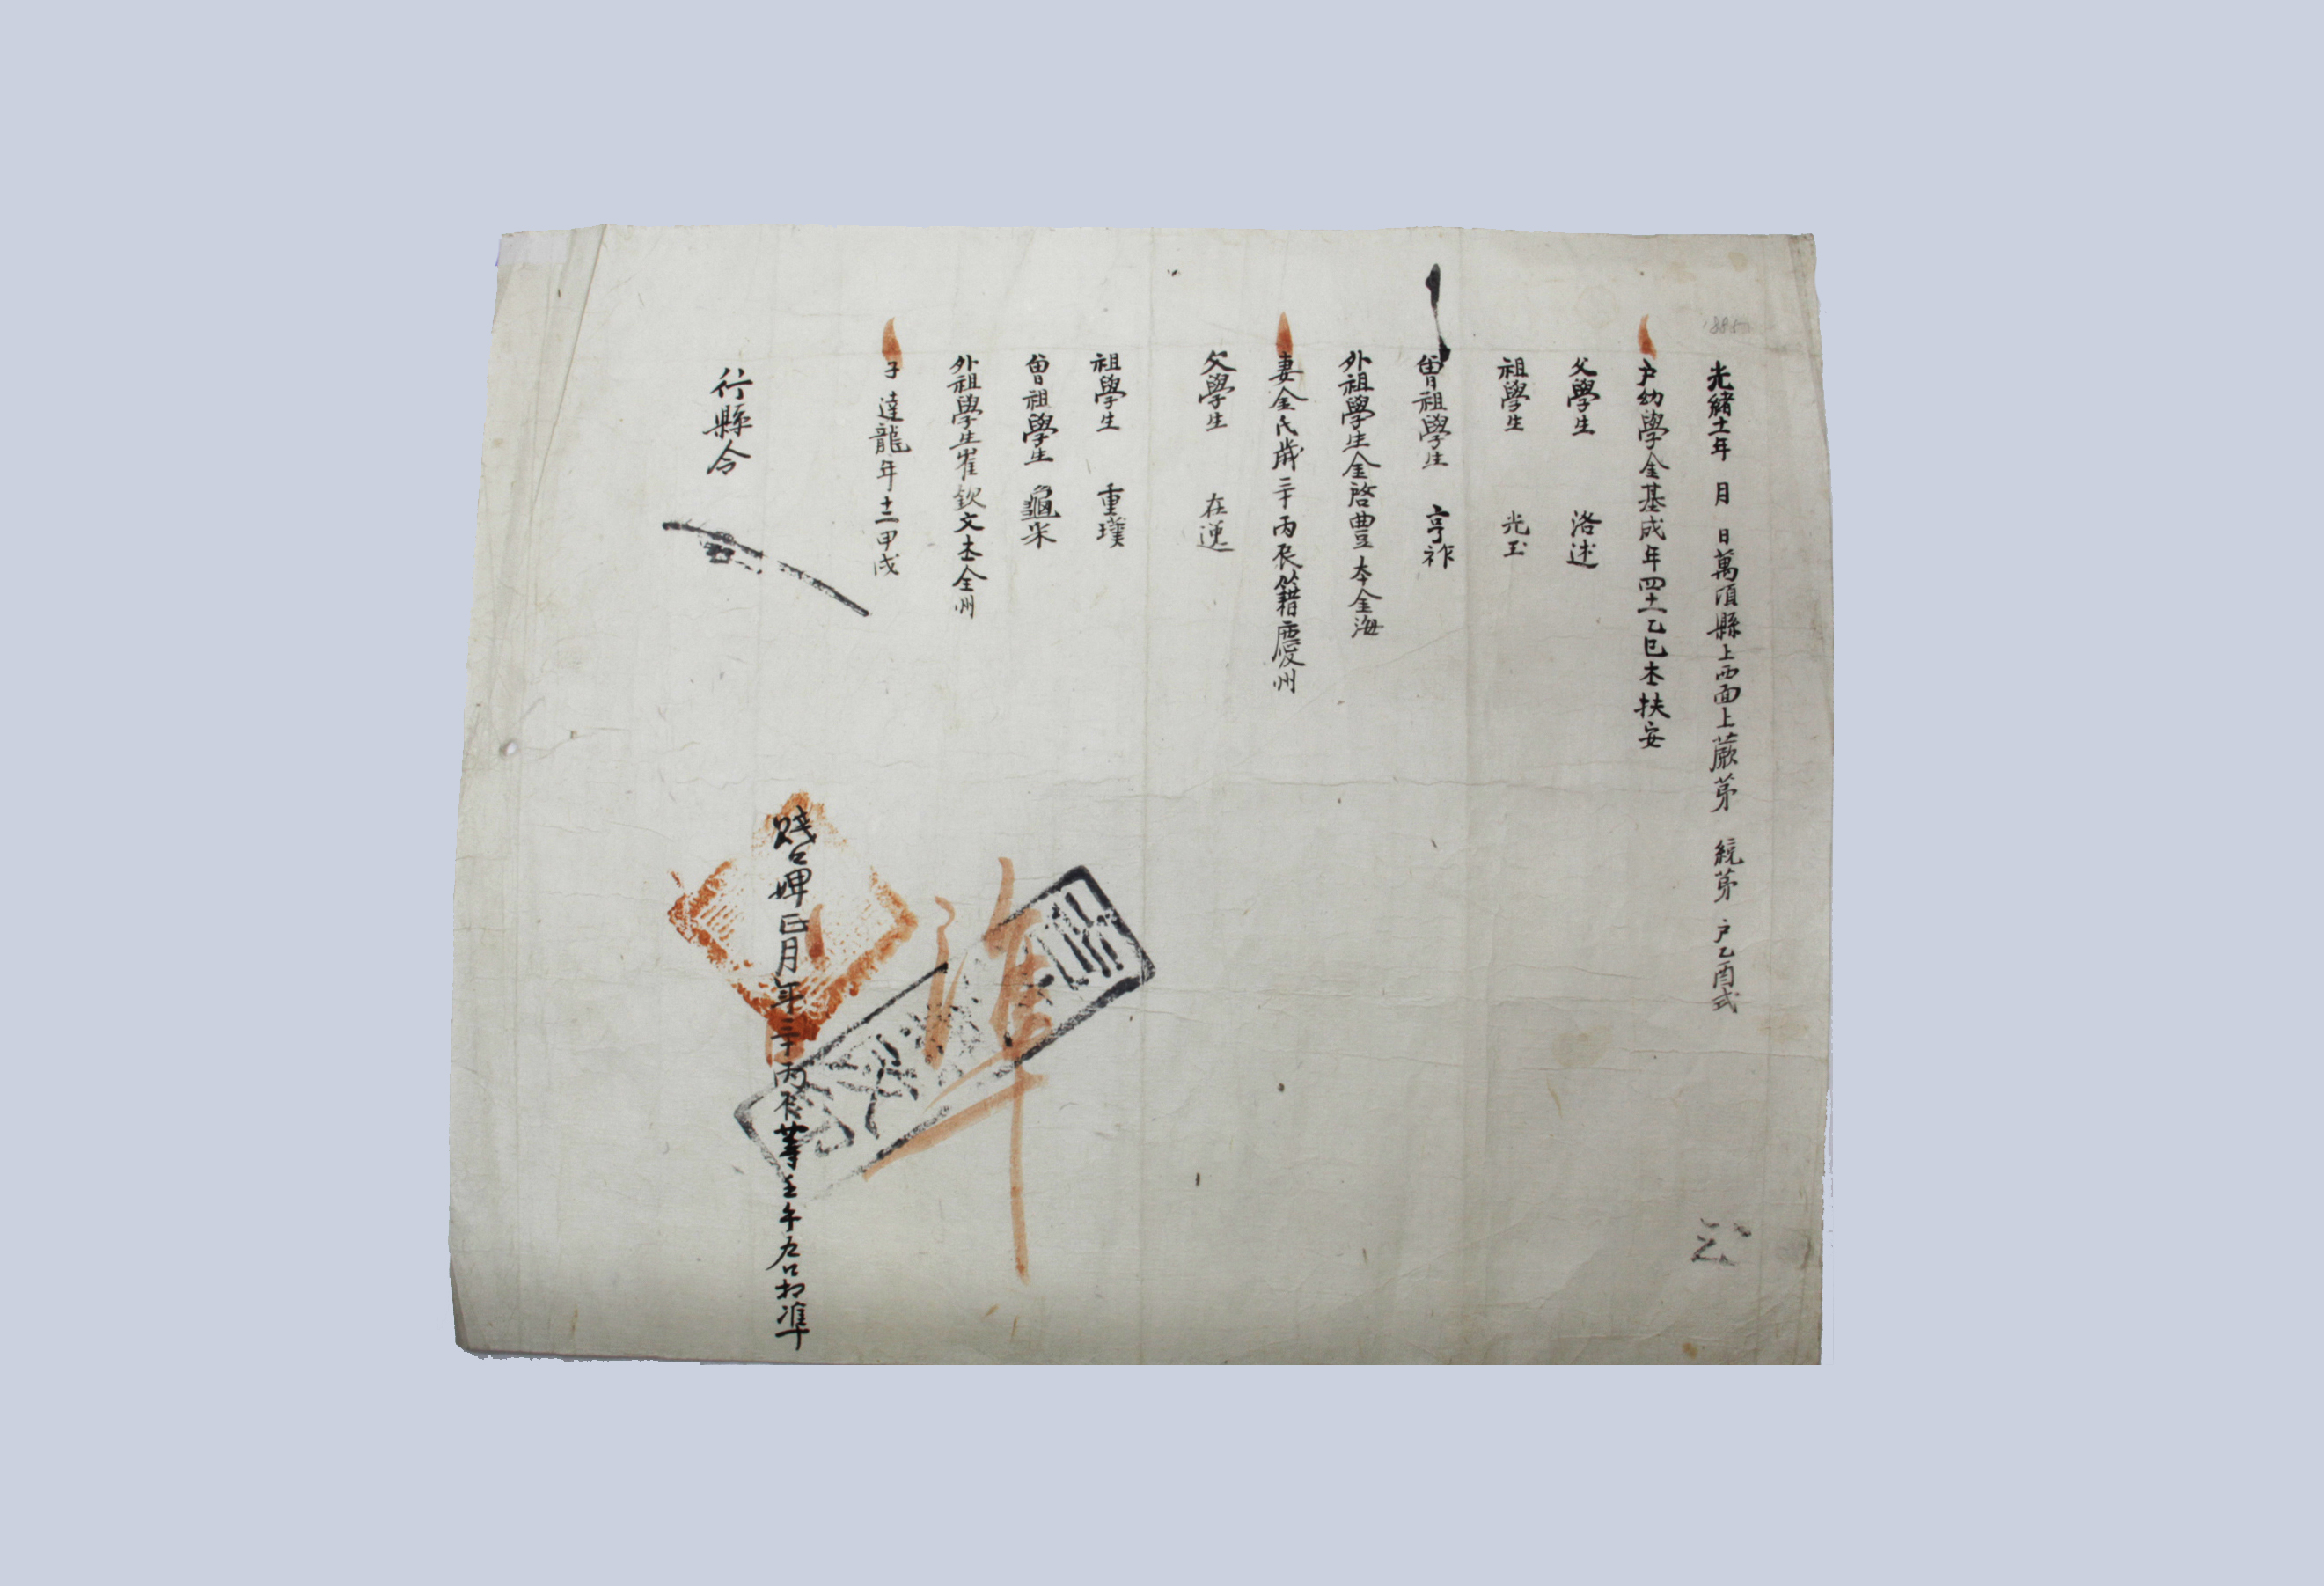 光緒十一年 月 日萬頃縣上西面上蕨第 統第 戶乙酉式
戶幼學金基成年四十一乙巳本扶安
父學生 洛述
祖學生 光玉
曾祖學生 亨祚
外祖學生金啓豊本金海
妻金氏歲三十丙辰籍慶州
父學生 在運
祖學生 重璞
曾祖學生 龜采
外祖學生崔欽文本全州
子 達龍年十二甲戌
賤口婢正月年三十丙辰等壬午戶口相準
行縣令
準
1885